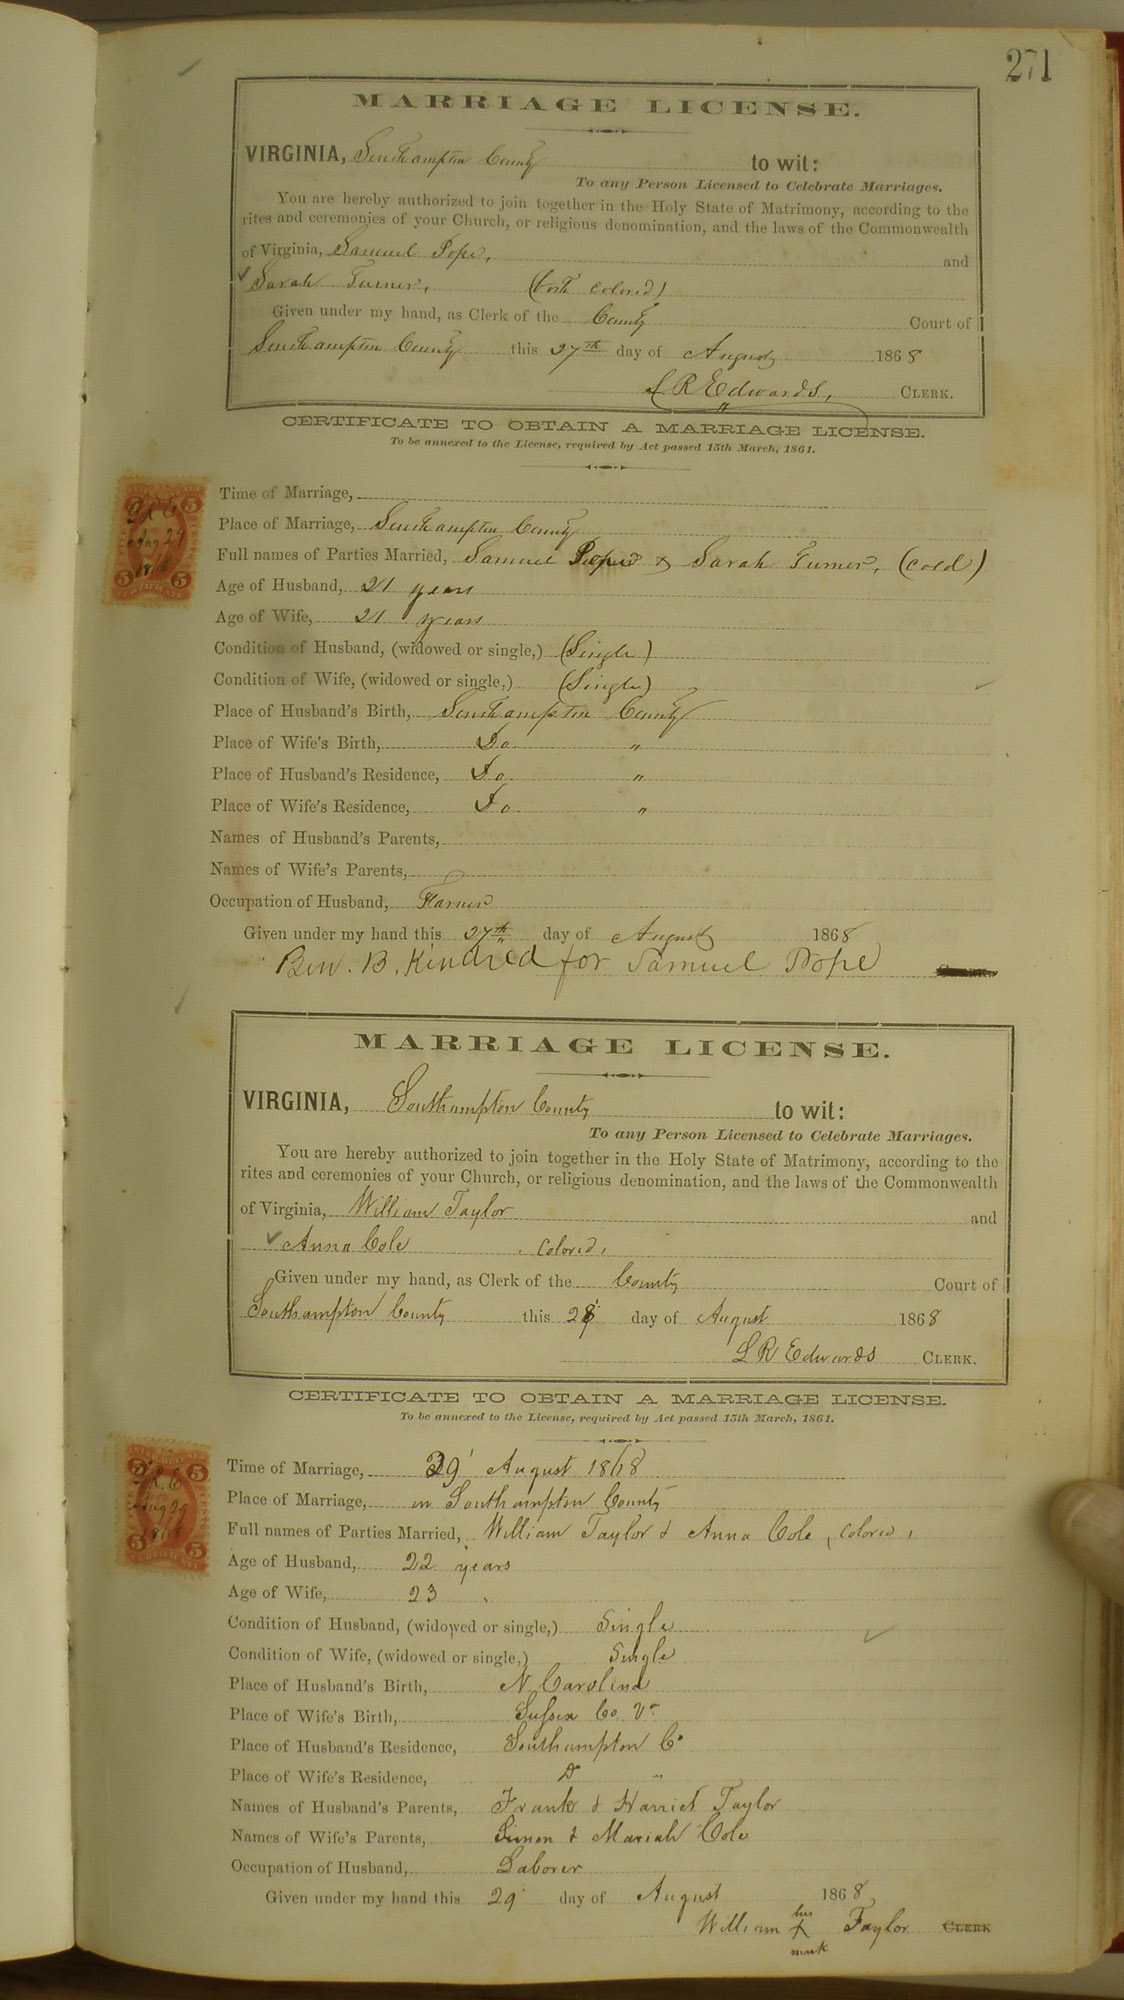 271
MARRIAGE LICENSE.
VIRGINIA, Southampton County to wit:
To any Person Licensed to Celebrate Marriages.
You are hereby authorized to join together in the Holy State of Matrimony, according to the
rites and ceremonies of your Church, or religious denomination, and the laws of the Commonwealth
of Virginia, Samuel Pope, and
Sarah Turner, (both colored)
Given under my hand, as Clerk of the County Court of
Southampton County this 27th day of August 1868
L R Edwards, CLERK.
CERTIFICATE TO OBTAIN A MARRIAGE LICENSE.
To be annexed to the License, required by Act passed 15th March, 1861.
Time of Marriage,
Place of Marriage, Southampton County
Full names of Parties Married, Samuel Pope & Sarah Turner, (cold)
Age of Husband, 21 years
Age of Wife, 21 years
Condition of Husband, (widowed or single,) (Single)
Condition of Wife, (widowed or single,) (Single)
Place of Husband's Birth, Southampton County
Place of Wife's Birth, Do. "
Place of Husband's Residence, Do. "
Place of Wife's Residence, Do. "
Names of Husband's Parents,
Names of Wife's Parents,
Occupation of Husband, Farmer
Given under my hand this 27th day of August 1868
Ben. B. Kindred for Samuel Pope
5 5
Aug 29
5 5
MARRIAGE LICENSE.
VIRGINIA, Southampton County to wit:
To any Person Licensed to Celebrate Marriages.
You are hereby authorized to join together in the Holy State of Matrimony, according to the
rites and ceremonies of your Church, or religious denomination, and the laws of the Commonwealth
of Virginia, William Taylor and
Anna Cole , colored,
Given under my hand, as Clerk of the County Court of
Southampton County this 28 day of August 1868
L R Edwards CLERK.
CERTIFICATE TO OBTAIN A MARRIAGE LICENSE.
To be annexed to the License, required by Act passed 15th March, 1861.
Time of Marriage, 29 August 1868
Place of Marriage, in Southampton County
Full names of Parties Married, William Taylor & Anna Cole, colored,
Age of Husband, 22 years
Age of Wife, 23 "
Condition of Husband, (widowed or single,) Single
Condition of Wife, (widowed or single,) Single
Place of Husband's Birth, N. Carolina
Place of Wife's Birth, Sussex Co. Va
Place of Husband's Residence, Southampton Co
Place of Wife's Residence, Do "
Names of Husband's Parents, Frank & Harriet Taylor
Names of Wife's Parents, Simon & Mariah Cole
Occupation of Husband, Laborer
Given under my hand this 29 day of August 1868
William his X mark Taylor CLERK
5 5
L.R.E
Aug 29
1868
5 5